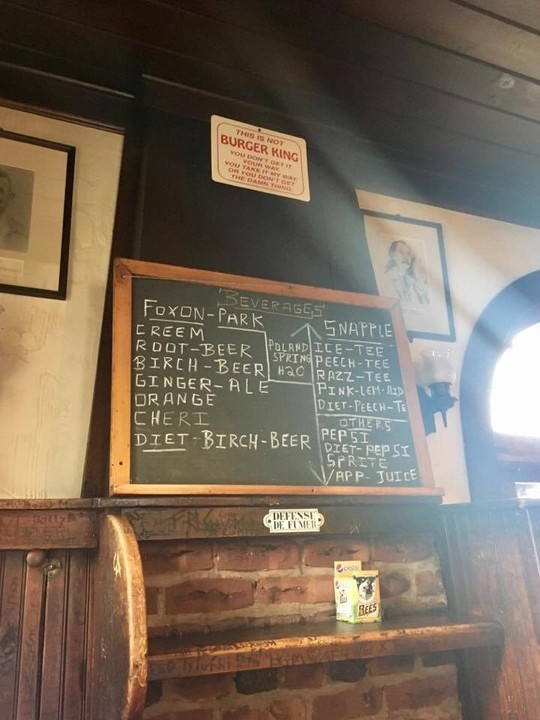 THIS IS NOT
BURGER KING
YOU DON'T GET IT
YOUR WAY.
YOU TAKE IT MY WAY,
OR YOU DON'T GET
THE DAMN THING.
BEVERAGES
FOXON-PARK
CREEM
ROOT-BEER
BIRCH-BEER
GINGER-ALE
ORANGE
CHERI
DIET-BIRCH-BEER
POLAND
SPRING
H2O
SNAPPLE
ICE-TEE
PEECH-TEE
RAZZ-TEE
PINK-LEM-AID
DIET-PEECH-TE
OTHERS
PEPSI
DIET-PEPSI
SPRITE
APP-JUICE
DEFENSE
DE FUMER
REES